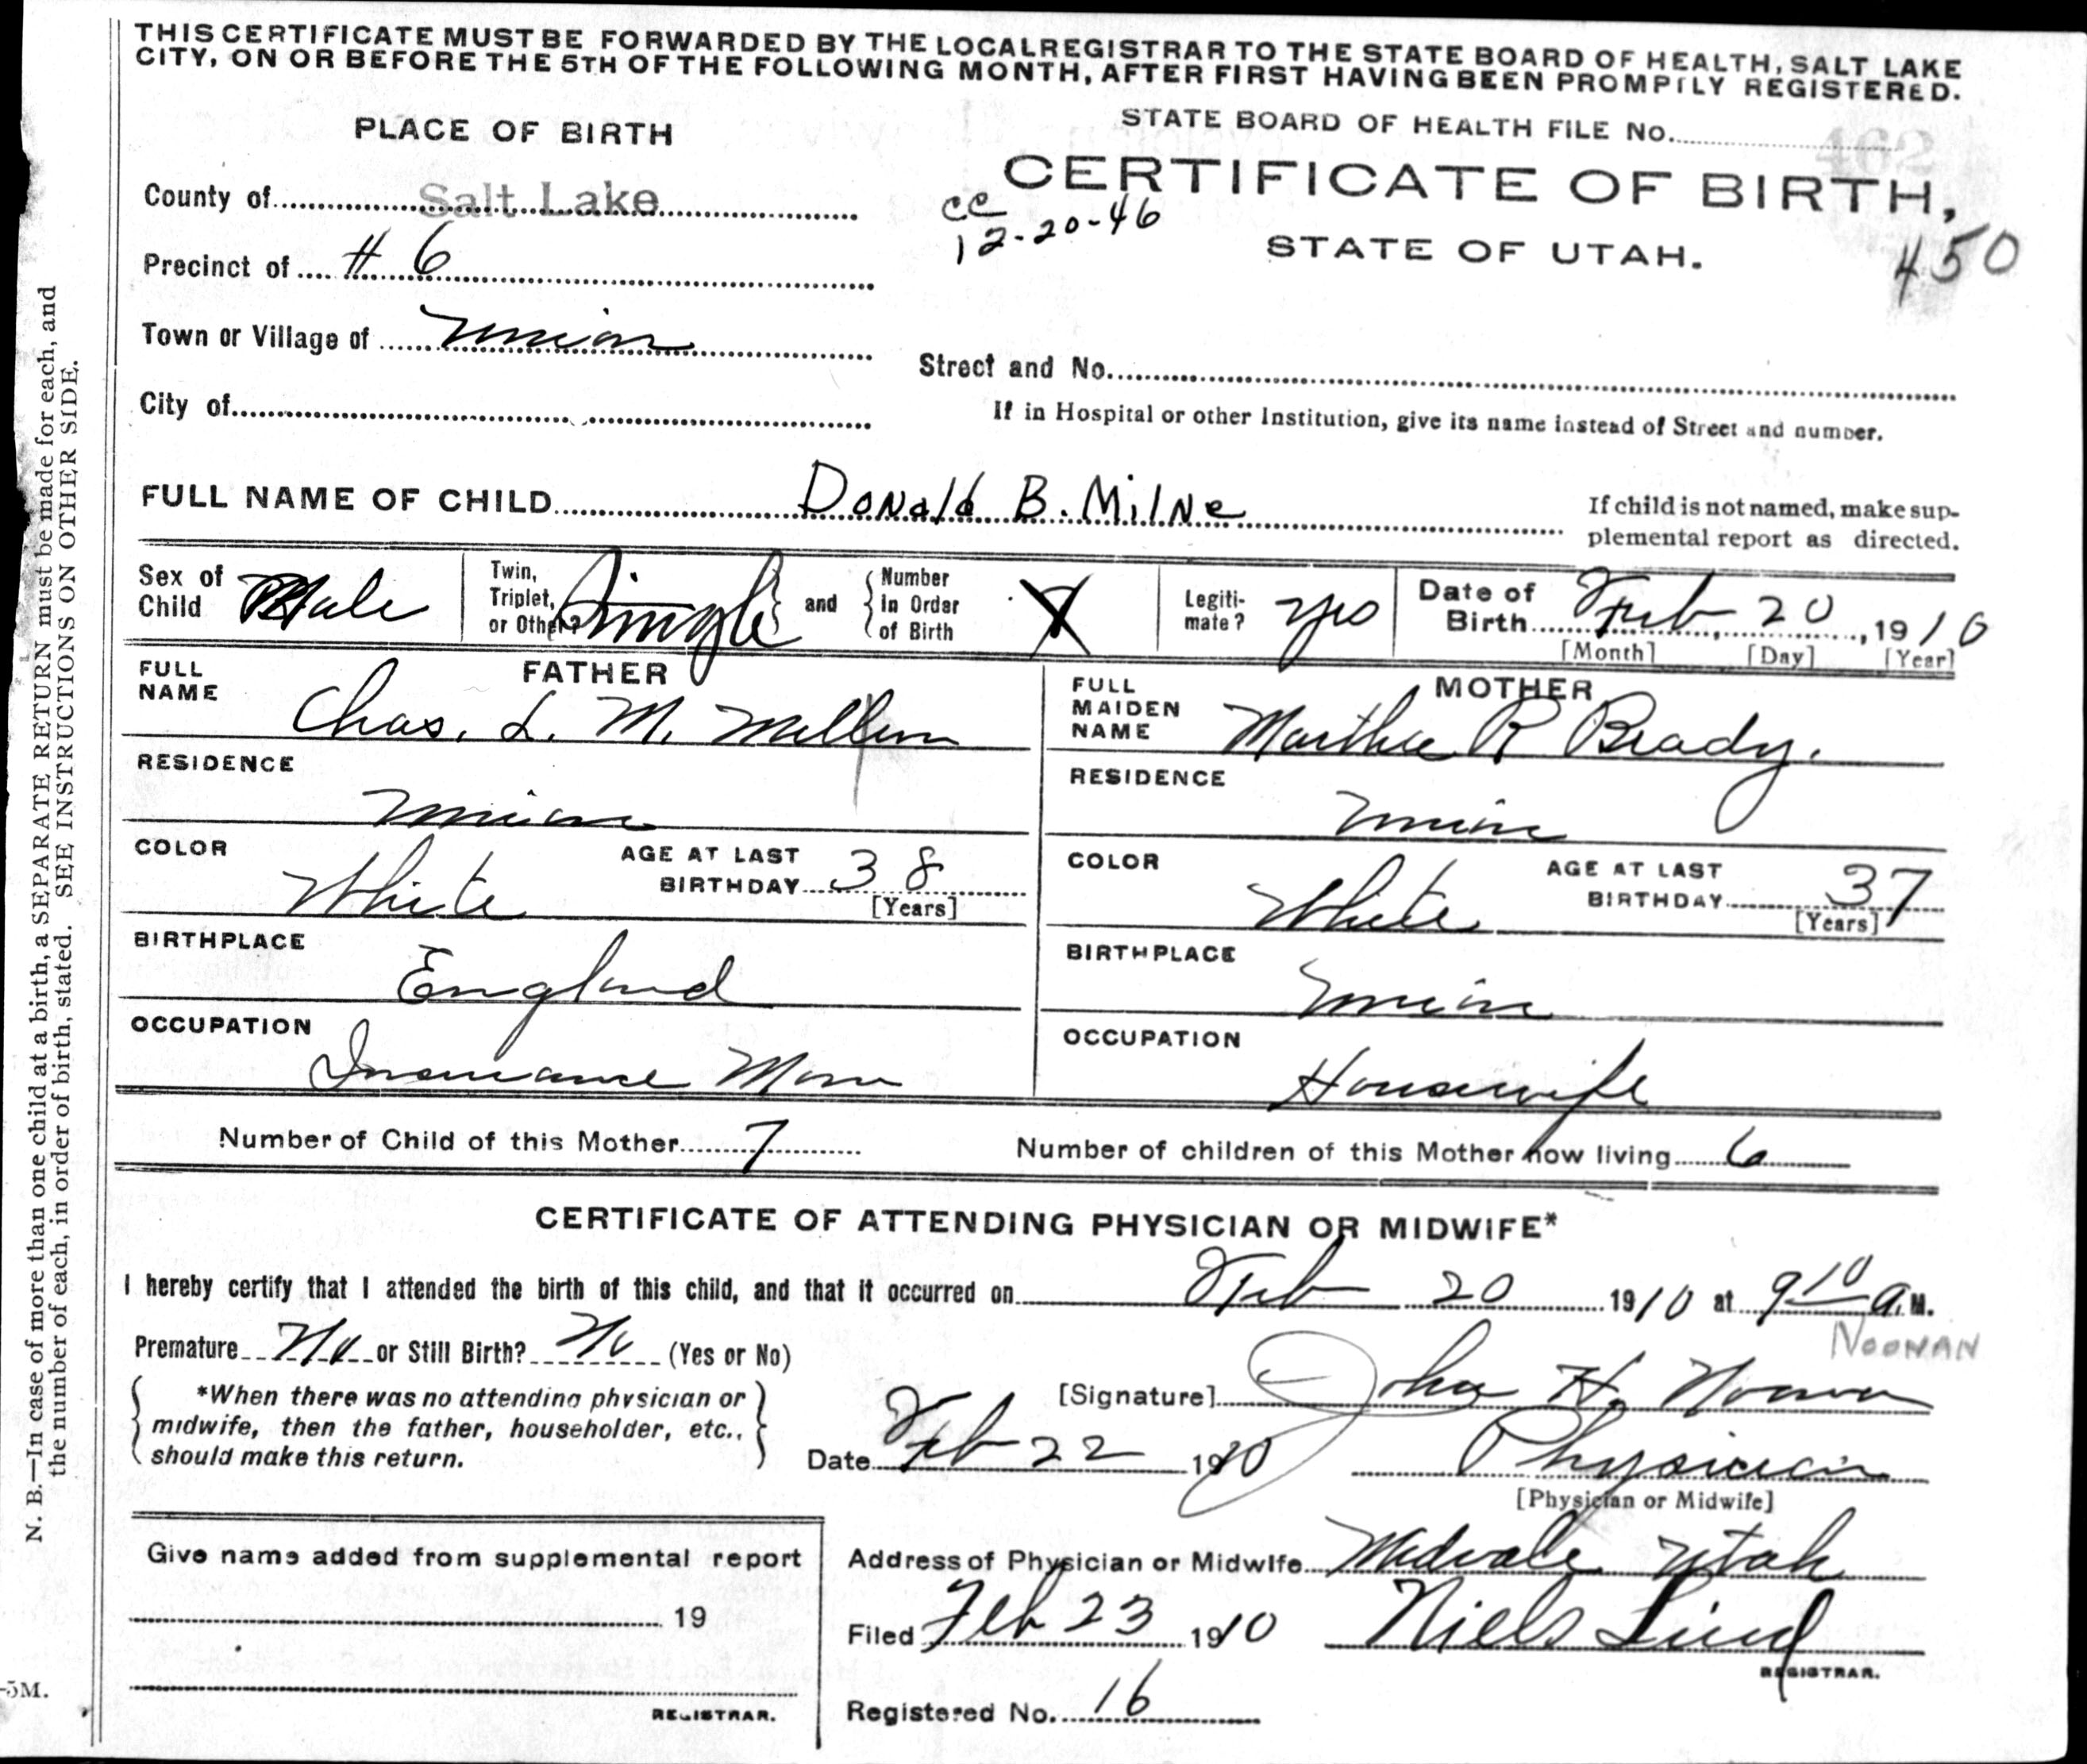 THIS CERTIFICATE MUST BE FORWARDED BY THE LOCAL REGISTRAR TO THE STATE BOARD OF HEALTH, SALT LAKE
CITY, ON OR BEFORE THE 5TH OF THE FOLLOWING MONTH, AFTER FIRST HAVING BEEN PROMPTLY REGISTERED.
PLACE OF BIRTH
STATE BOARD OF HEALTH FILE No. 462
County of Salt Lake
CERTIFICATE OF BIRTH,
cc
12-20-46
STATE OF UTAH.
450
Precinct of # 6
Town or Village of Union
Street and No.
City of
If in Hospital or other Institution, give its name instead of Street and number.
FULL NAME OF CHILD Donald B. Milne
If child is not named, make sup-
plemental report as directed.
Sex of Child Male
Twin, Triplet, or Other? Single and Number in Order of Birth X
Legiti-mate? yes
Date of Birth Feb 20, 1910
[Month] [Day] [Year]
FATHER
FULL NAME Chas. L. M.
MOTHER
FULL MAIDEN NAME Martha R Brady.
RESIDENCE Union
RESIDENCE Union
COLOR White AGE AT LAST BIRTHDAY 38 [Years]
COLOR White AGE AT LAST BIRTHDAY 37 [Years]
BIRTHPLACE England
BIRTHPLACE Union
OCCUPATION Insurance Man
OCCUPATION Housewife
Number of Child of this Mother 7 Number of children of this Mother now living 6
CERTIFICATE OF ATTENDING PHYSICIAN OR MIDWIFE*
I hereby certify that I attended the birth of this child, and that it occurred on Feb 20 1910 at 9 10 a. M.
Premature No or Still Birth? No (Yes or No)
NOONAN
*When there was no attending physician or
midwife, then the father, householder, etc.,
should make this return.
[Signature] John H. Noonan
Date Feb 22 1910 Physician
[Physician or Midwife]
Give name added from supplemental report
19
REGISTRAR.
Address of Physician or Midwife Midvale Utah
Filed Feb 23 1910 Niels Lind
REGISTRAR.
Registered No. 16
N. B.—In case of more than one child at a birth, a SEPARATE RETURN must be made for each, and
the number of each, in order of birth, stated. SEE INSTRUCTIONS ON OTHER SIDE.
-5M.